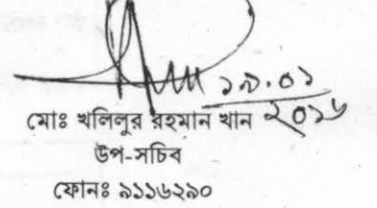 ১৯.০১
২০১৬
মোঃ খলিলুর রহমান খান
উপ-সচিব
ফোনঃ ৯১১৬২৯০